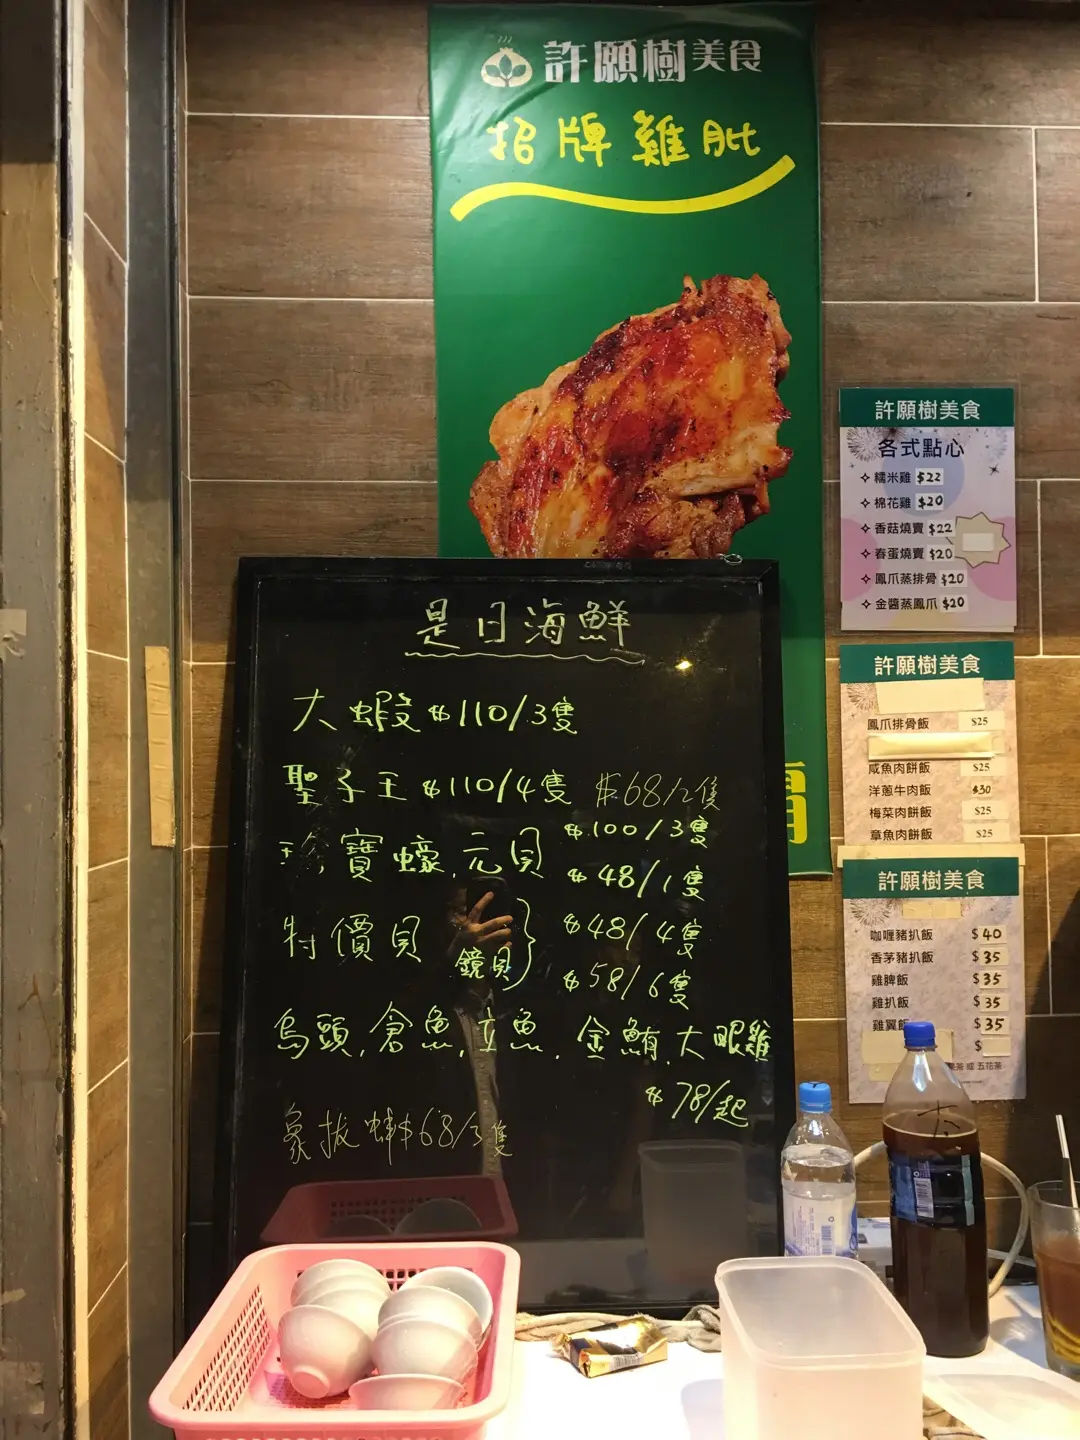 許願樹美食
招牌雞肶
是日海鮮
大蝦 $110/3隻
聖子王 $110/4隻 $68/2隻
珍寶蠔.元貝 $100/3隻
$48/1隻
特價貝 $48/4隻
鏡貝 $58/6隻
烏頭.倉魚.立魚.金鯆.大眼雞
$78/起
象拔蚌$68/3隻
許願樹美食
各式點心
糯米雞 $22
棉花雞 $20
香菇燒賣 $22
春蛋燒賣 $20
鳳爪蒸排骨 $20
金醬蒸鳳爪 $20
許願樹美食
鳳爪排骨飯 $25
咸魚肉餅飯 $25
洋蔥牛肉飯 $30
梅菜肉餅飯 $25
章魚肉餅飯 $25
許願樹美食
咖喱豬扒飯 $40
香茅豬扒飯 $35
雞脾飯 $35
雞扒飯 $35
雞翼飯 $35
$
茶 或 五花茶